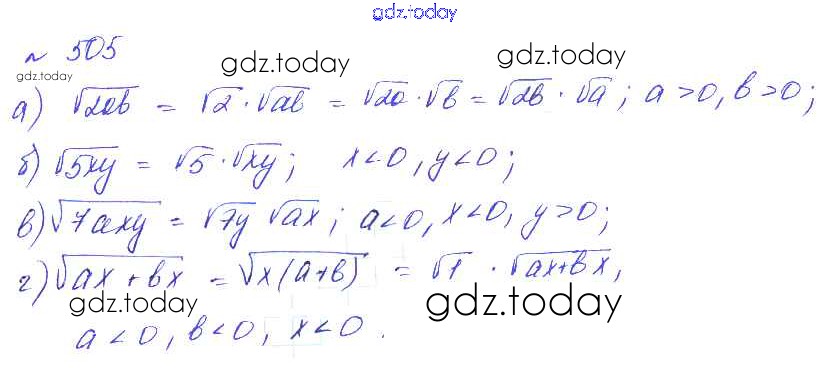 gdz.today
№ 505
gdz.today
gdz.today
gdz.today
а) √2ab = √2 · √ab = √2a · √b = √2b · √a ; a >0, b >0 ;
б) √5xy = √5 · √xy ; x<0, y<0 ;
в) √7axy = √7y √ax ; a<0, x<0, y>0 ;
г) √ax + bx = √x(a+b) = √1 · √ax+bx ,
gdz.today
gdz.today
a < 0, b<0, x<0 .